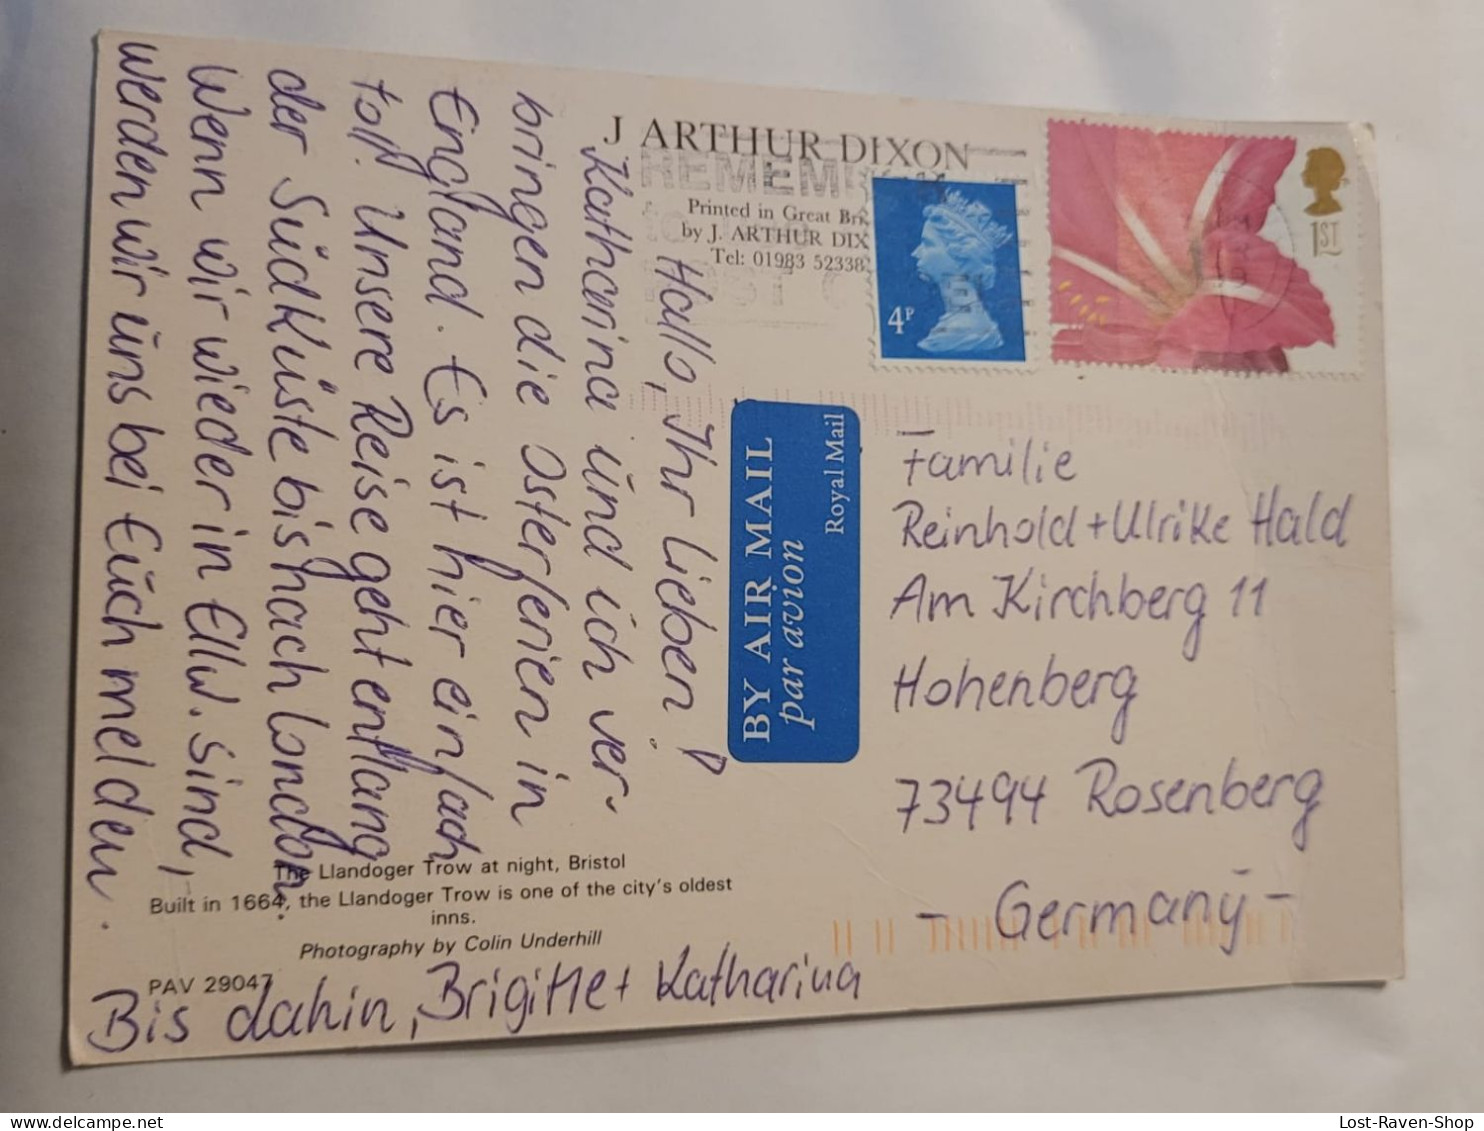 J ARTHUR DIXON
Printed in Great
by J. ARTHUR DIX
Tel: 01983 52338
REMEM
POST
4P
1ST
BY AIR MAIL
par avion
Royal Mail
Hallo, Ihr Lieben!
Katharina und ich ver-
bringen die Osterferien in
England. Es ist hier einfach
toll! Unsere Reise geht entlang
der Südküste bis nach London.
Wenn wir wieder in Ellw. sind,
werden wir uns bei Euch melden.
Bis dahin, Brigitte + Katharina
Familie
Reinhold + Ulrike Hald
Am Kirchberg 11
Hohenberg
73494 Rosenberg
- Germany -
The Llandoger Trow at night, Bristol
Built in 1664, the Llandoger Trow is one of the city's oldest
inns.
Photography by Colin Underhill
PAV 29047
Lost-Raven-Shop